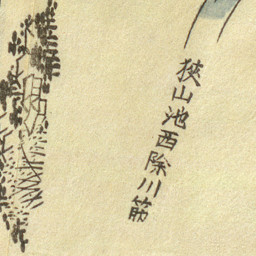 狹山池西除川筋